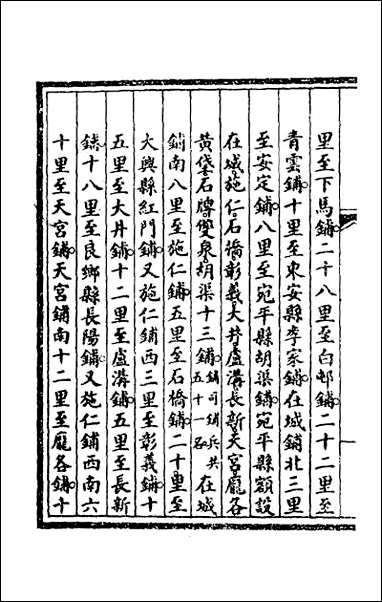 里至下馬鋪二十八里至白邨鋪二十二里至
青雲鋪十里至東安縣李家鋪在城鋪北三里
至安定鋪八里至宛平縣胡渠鋪宛平縣額設
在城施仁石橋彰義大井盧溝長新天宮龐各
黃垡石牌雙泉胡渠十三鋪鋪司鋪兵共五十一名在城
鋪南八里至施仁鋪五里至石橋鋪二十里至
大興縣紅門鋪又施仁鋪西三里至彰義鋪十
五里至大井鋪十二里至盧溝鋪五里至長新
鋪十八里至良鄉縣長陽鋪又施仁鋪西南六
十里至天宮鋪天宮鋪南十二里至龐各鋪十